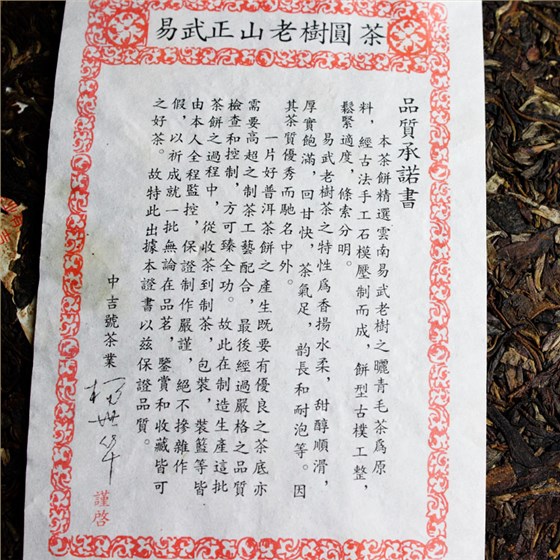 易武正山老樹圓茶
品質承諾書
本茶餅精選雲南易武老樹之曬青毛茶爲原
料，經古法手工石模壓制而成，餅型古樸工整，
鬆緊適度，條索分明。
易武老樹茶之特性爲香揚水柔，甜醇順滑，
厚實飽滿，回甘快，茶氣足，韵長和耐泡等。因
其茶質優秀而馳名中外。
一片好普洱茶餅之產生既要有優良之茶底亦
需要高超之制茶工藝配合，最後經過嚴格之品質
檢查和控制，方可臻全功。故此在制造生產這批
茶餅之過程中，從收茶到制茶，包裝，裝籃等皆
由本人全程監控，保證制作嚴謹，絕不摻雜作
假，以祈成就一批無論在品茗，鑒賞和收藏皆可
之好茶。故特此出據本證書以兹保證品質。
中吉號茶業
謹啓